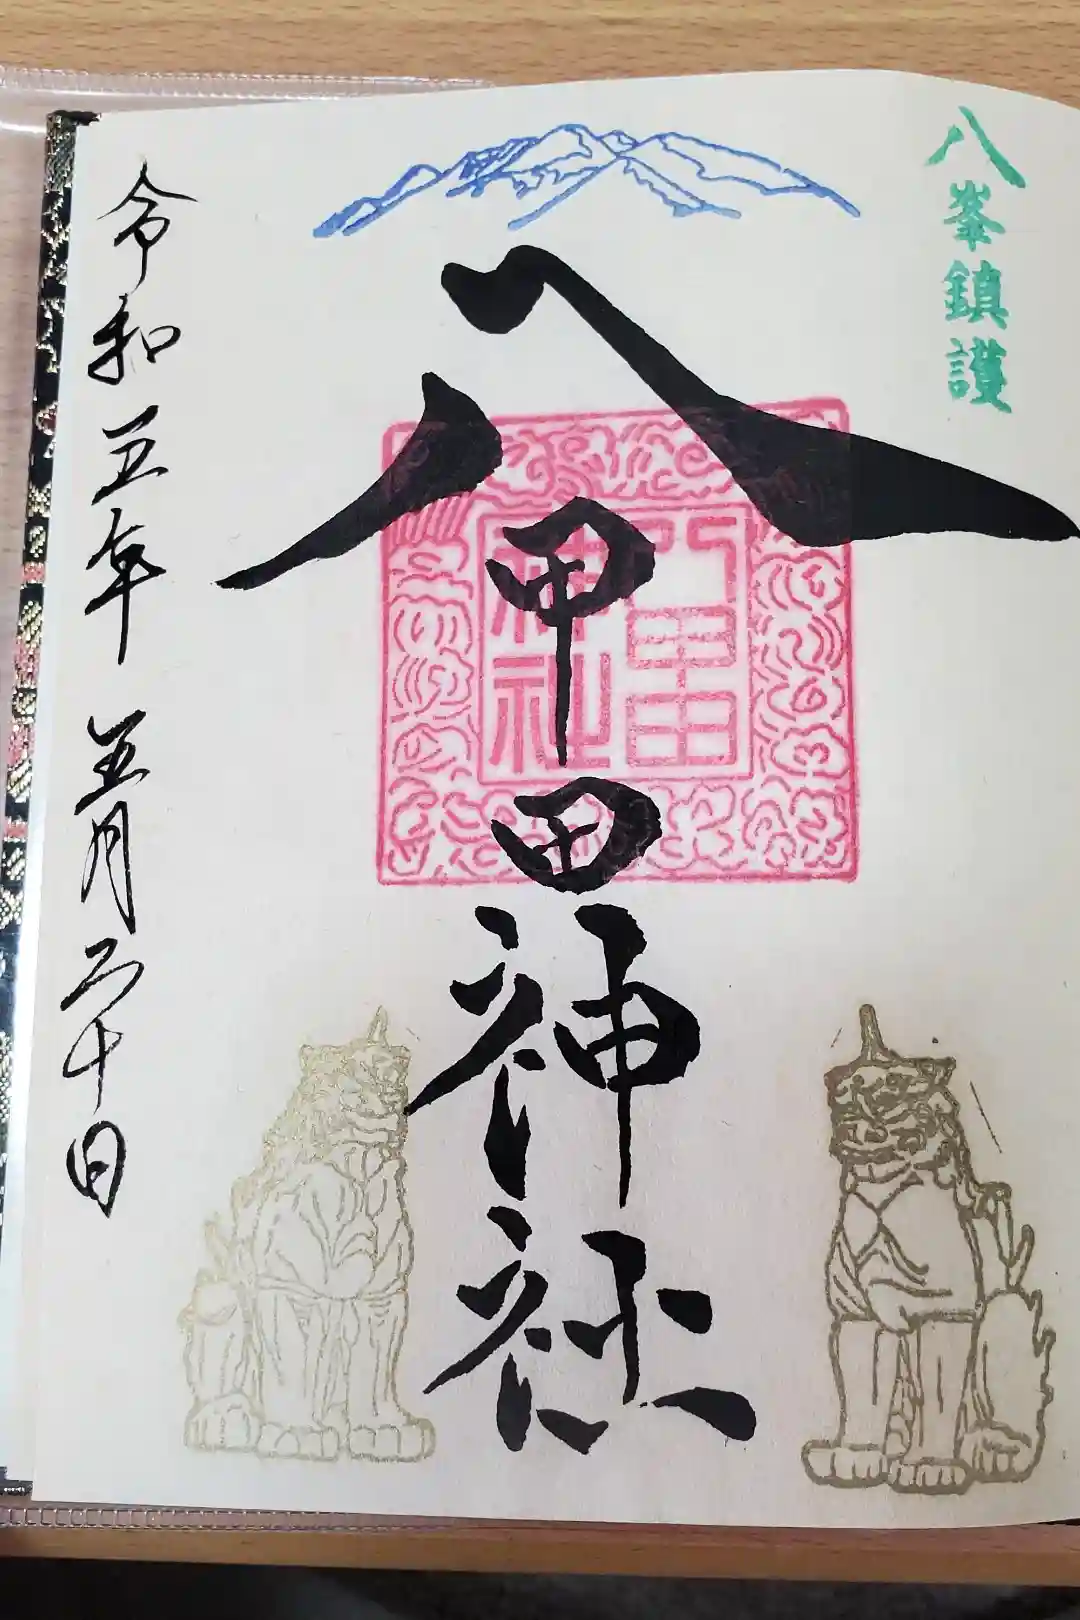 八峯鎮護
八甲田神社
八甲田
神社
令和五年五月二十日